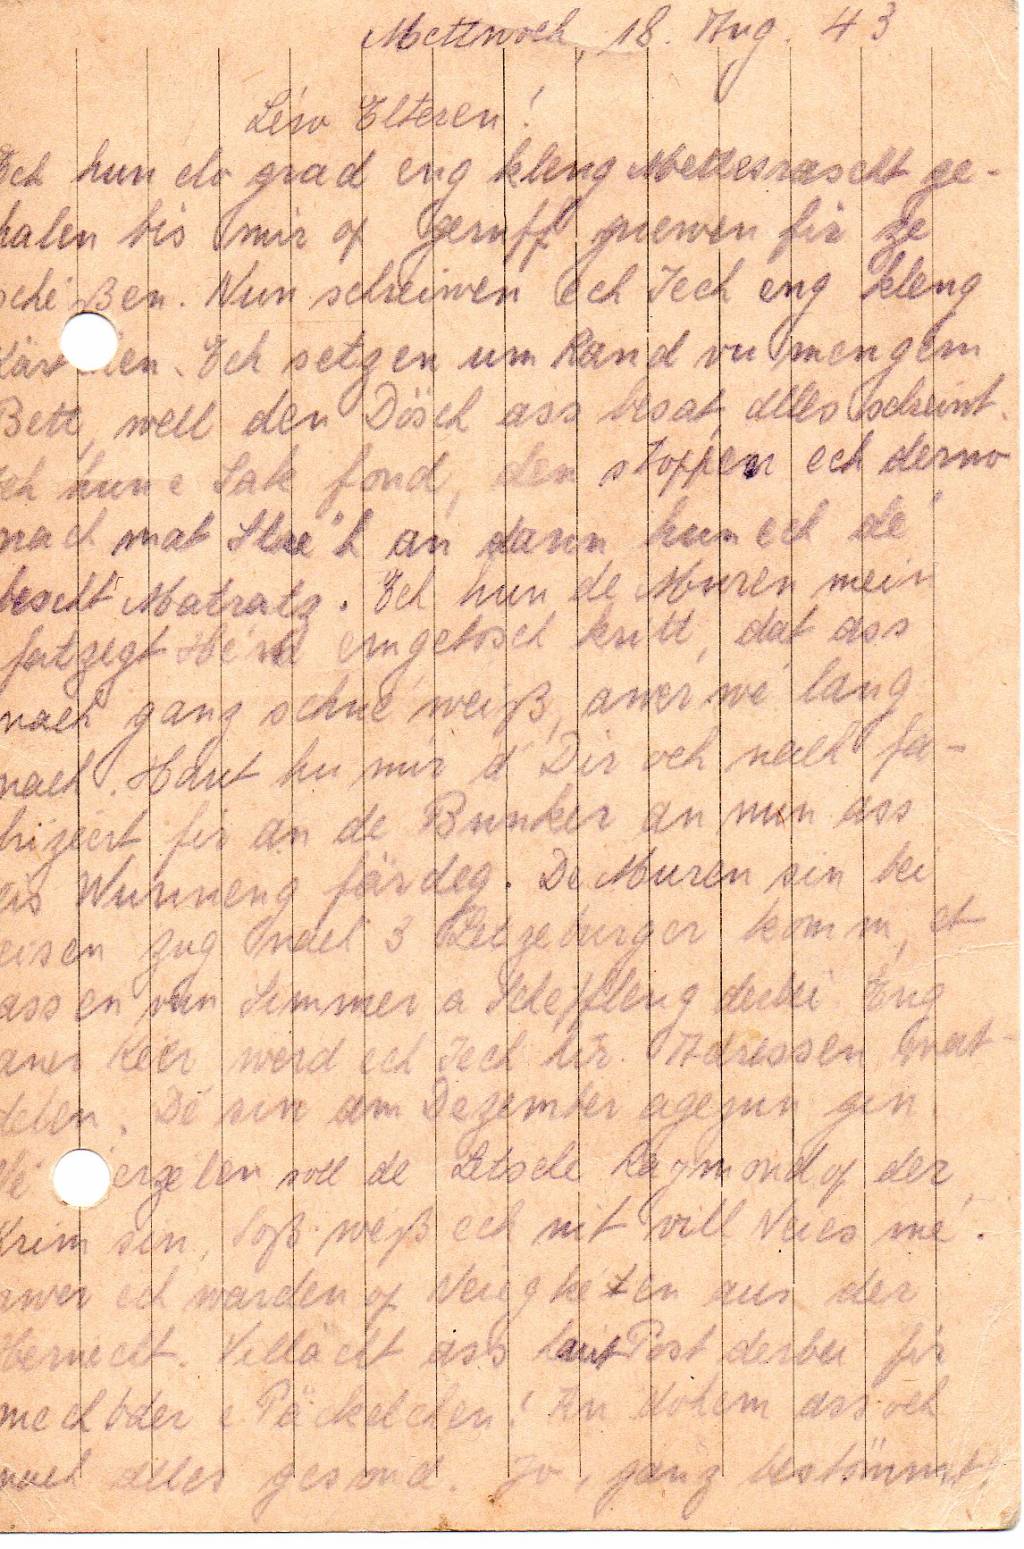 Mettwoch, 18. Aug. 43
Léiw Elteren!
Ech hun elo grad eng kleng Mettesrascht ge-
halen bis mir op geruff guewen fir ze
schéißen. Nun schreiwen ech Iech eng kleng
Kärtchen. Ech setzen um Rand vu mengem
Bett, well den Dösch ass besat, alles schreiwt.
Ech hun e Sak fond, den stoppen ech derno
nach mat Stré'h an dann hun ech dé
bescht Matratz. Ech hun de Muren mein
fatzegt Hé'md emgetosch kritt, dat ass
nach ganz schné weiß, awer wé lang
nach. Haut hu mir d'Dir och nach fa-
brizéiert fir an de Bunker an nun ass
eis Wunneng färdeg. De Muren sin bei
eisen Zug nach 3 Letzeburger komm, et
ass en vun Simmer a Scheffleng derbei Eng
aner Kéier werd ech Iech hir Adressen mat-
delen. Dé sin am Dezember agezun gin
Wé erzelen soll de Letsch Raymond op der
Krim sin. Soß weß ech nit vill Neies mé.
awer ech warden op Neiegkeeten aus der
Hemecht. Villächt ass haut Post derbei fir
mech oder e Päckelchen! An doheem ass och
nach alles gesond. Jo, ganz bestömmt!